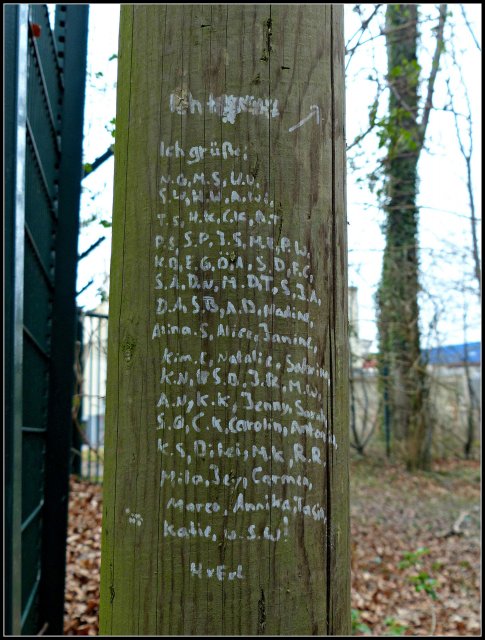 Ich grüße:
N.G, M.S, U.U,
S.U, H.W, A.W,
T.S, H.K, C.K, A.T
P.S, S.P, J.S, M.W, P.W,
K.D, E.G, Ö.A, S.D, F.C,
S.A, D.N, M.D, T.S, J.A,
D.A, S.B, A.D, Nadine,
Alina.S, Alice, Janine,
Kim.C, Natalie, Sabrina
K.N, S.D, J.R, M.W,
A.N, K.K, Jenny, Sarah
S.G, C.K, Carolin, Antonia
K.S, M.K, R.R,
Milo, Jey, Carmen,
Marco, Annika,
Katie, u.s.w!